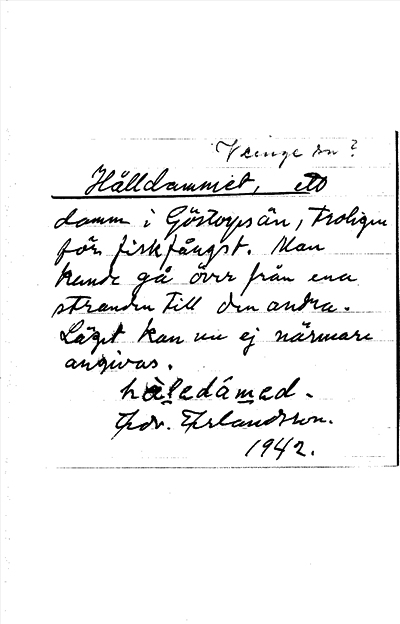 Veinge sn?
Hälldammet, ett
damm i Göstorpsån, troligen
för fiskfångst. Man
kunde gå över från ena
stranden till den andra.
Läget kan nu ej närmare
angivas.
Edv. Erlandsson.
1942.